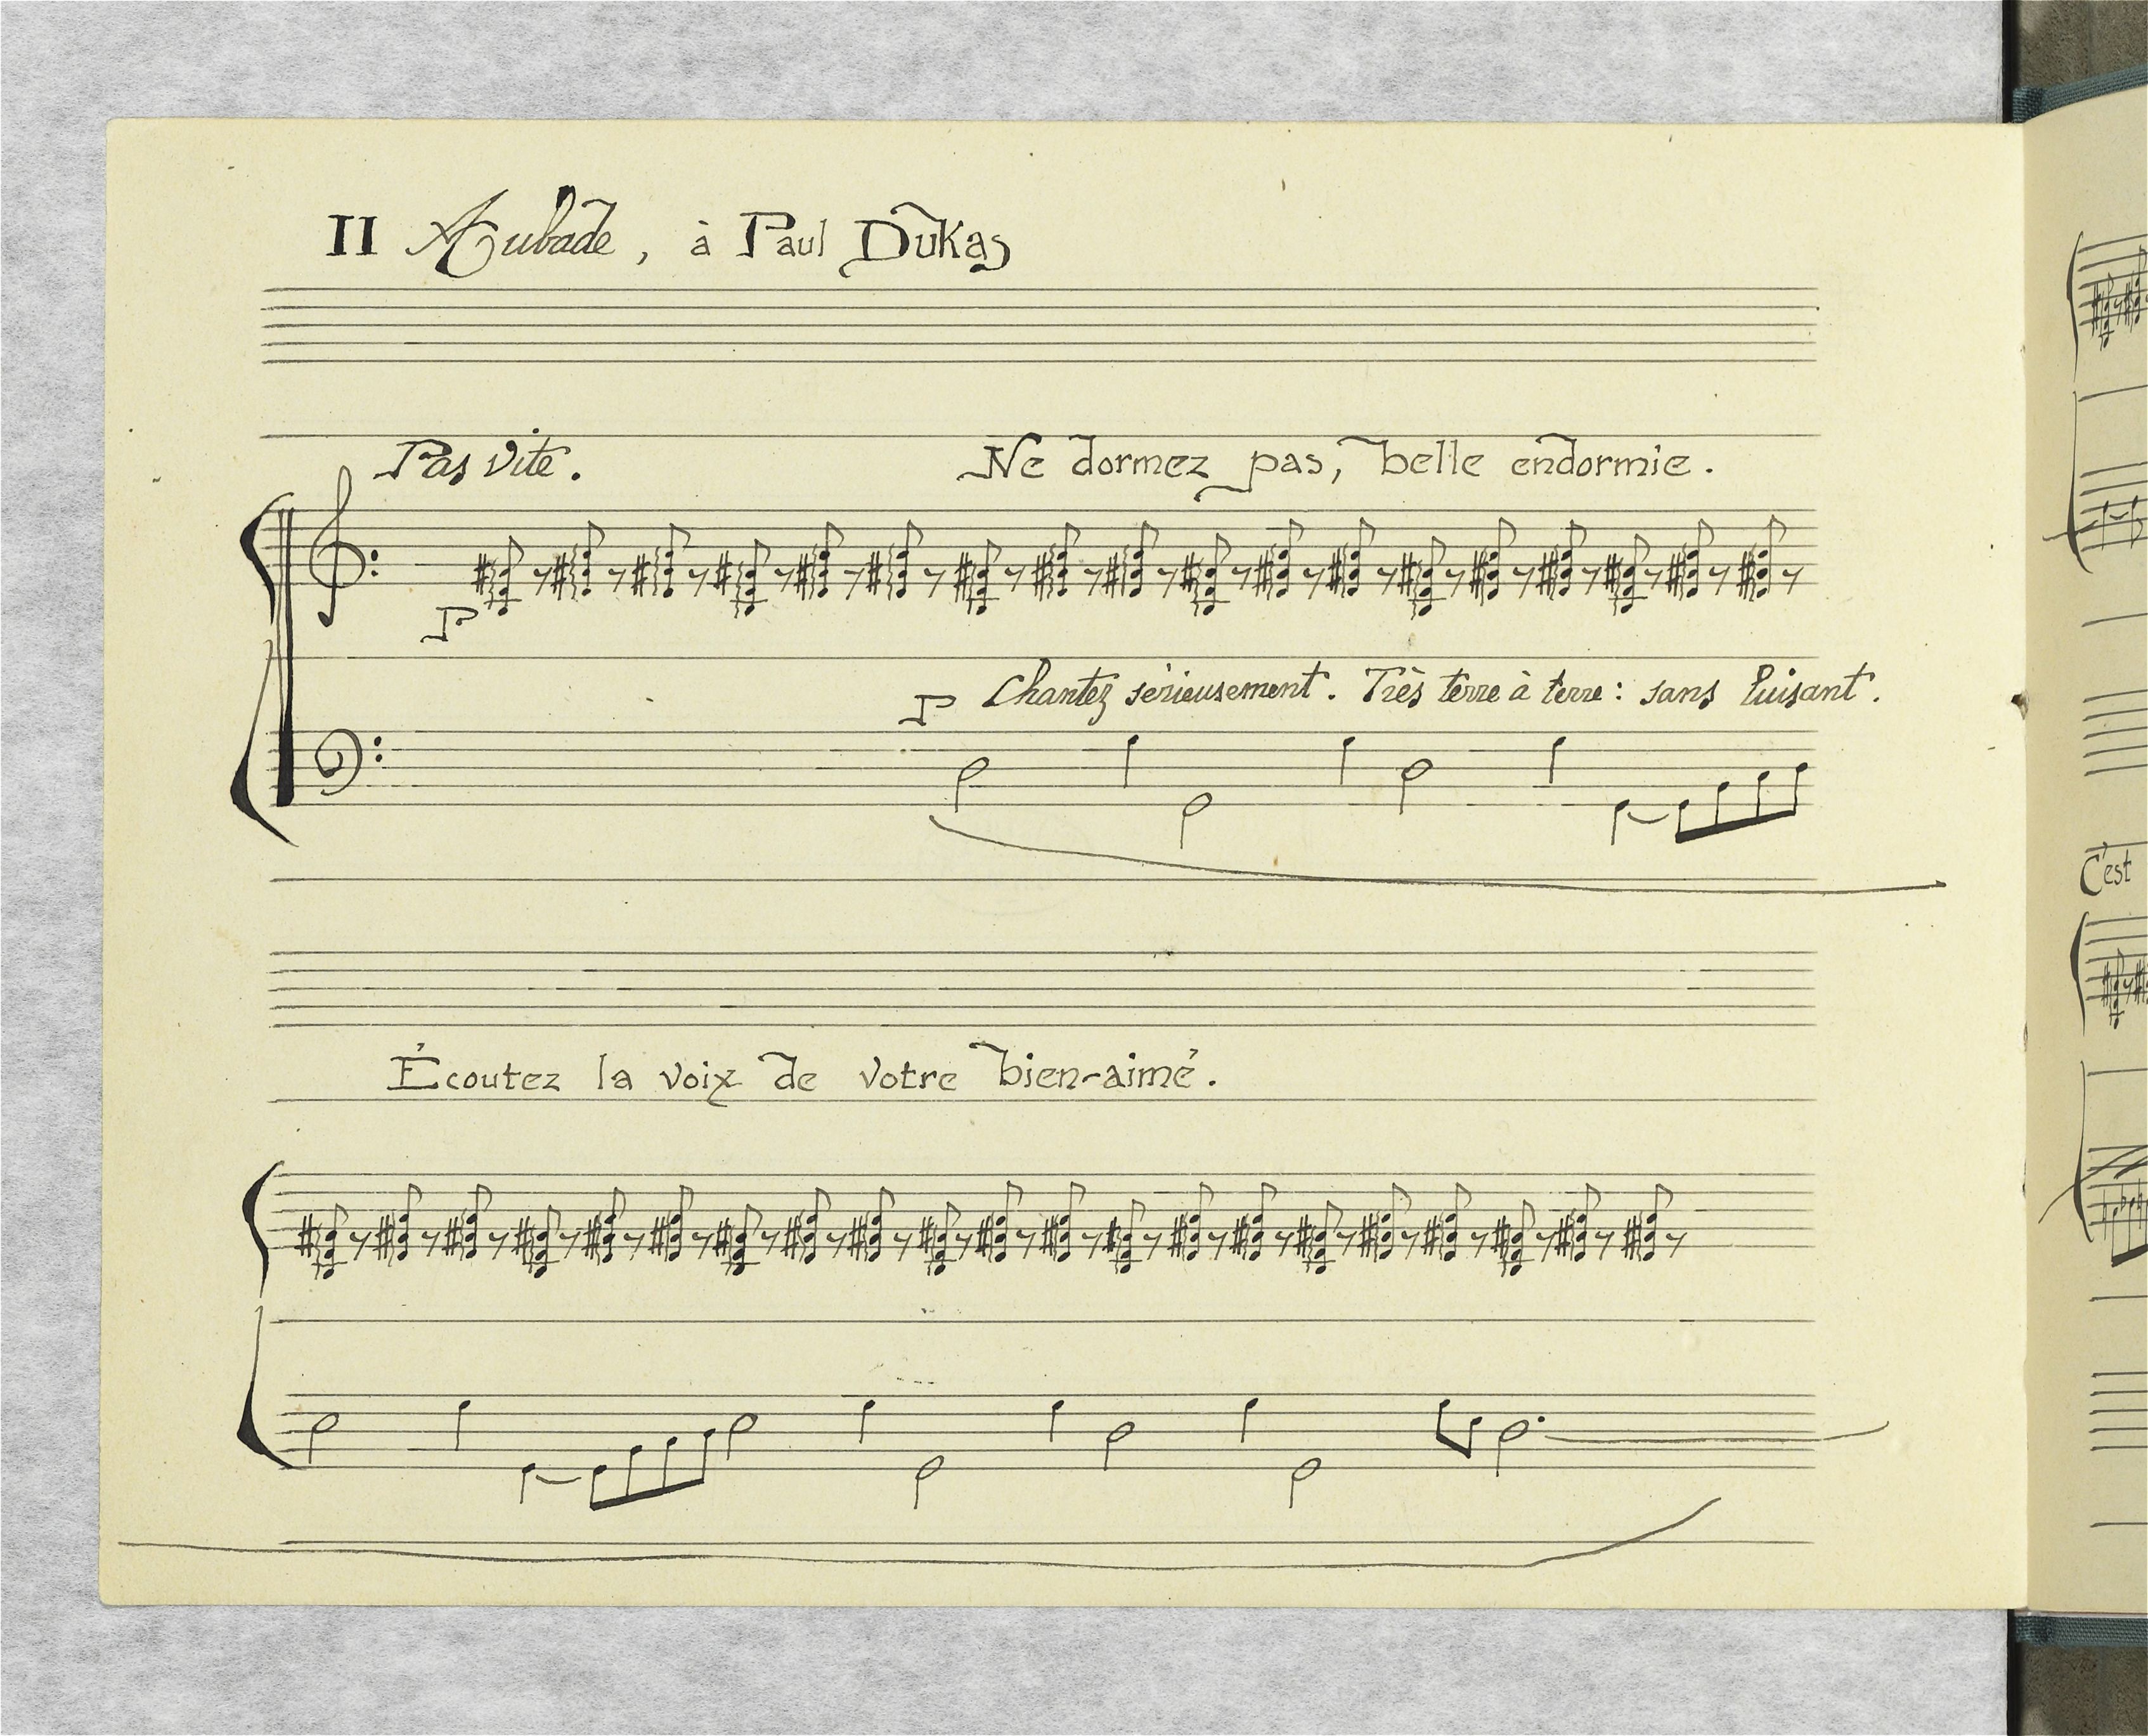 II Aubade, à Paul Dukas
Pas vite.
Ne dormez pas, belle endormie.
P
P Chantez sérieusement. Très terre à terre: sans luisant.
Écoutez la voix de votre bien-aimé.
C'est